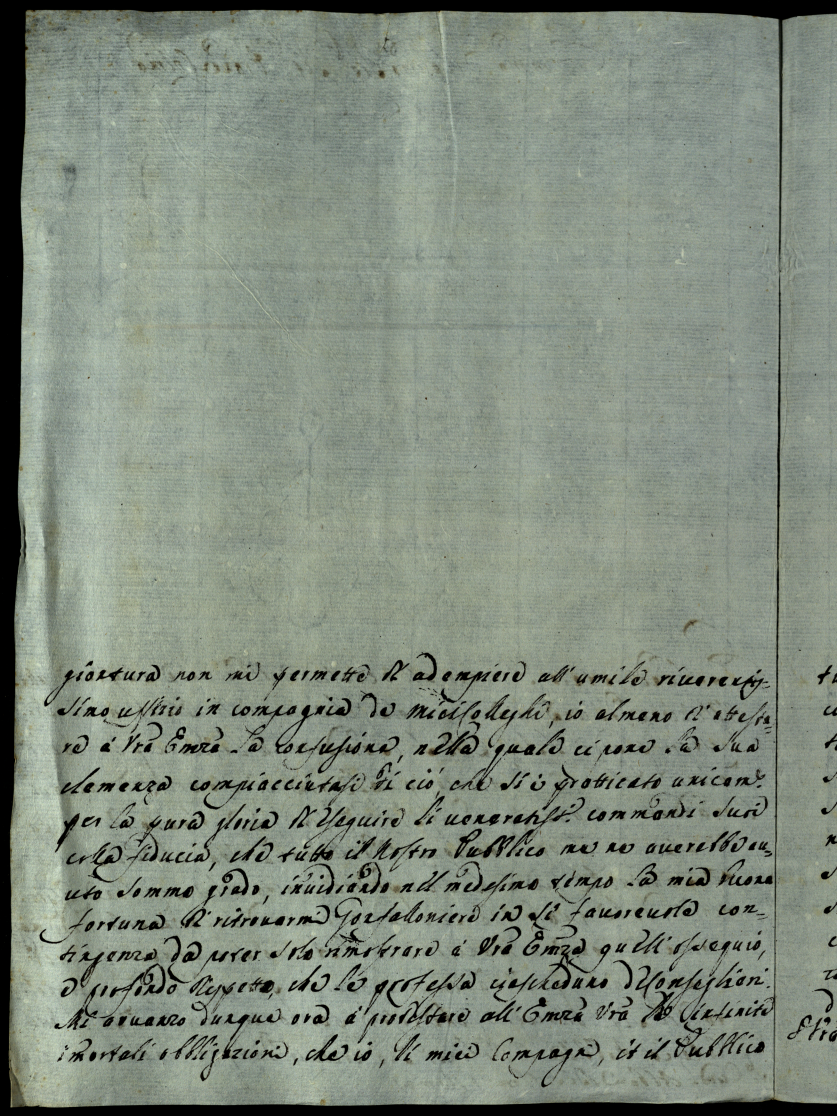 giontura non mi permette di adempiere all'umile riverentis=
simo uffizio in compagnia de miei Colleghi, io almeno d'attesta=
re à Vr̃a Em̃za la confusione, nella quale ci pone la sua
clemenza compiacciutasi di ciò, che si è pratticato unicam.e
per la pura gloria di eseguire li veneratiss.i commandi su
certa fiducia, che tutto il Nostro Pubblico me ne averebbe au=
uto sommo grado, invidiando nell medesimo tempo la mia buona
fortuna di ritrovarmi Gonfalloniere in sì favorevole con=
tingenza da poter solo dimostrare à Vr̃a Em̃za quell'ossequio,
e profondo rispetto, che le professa ciascheduno de Consiglieri.
Mi avvanzo dunque ora à protestare all'Em̃za Vr̃a le infinite
immortali obbligazioni, che io, li miei Compagni, et il Pubblico